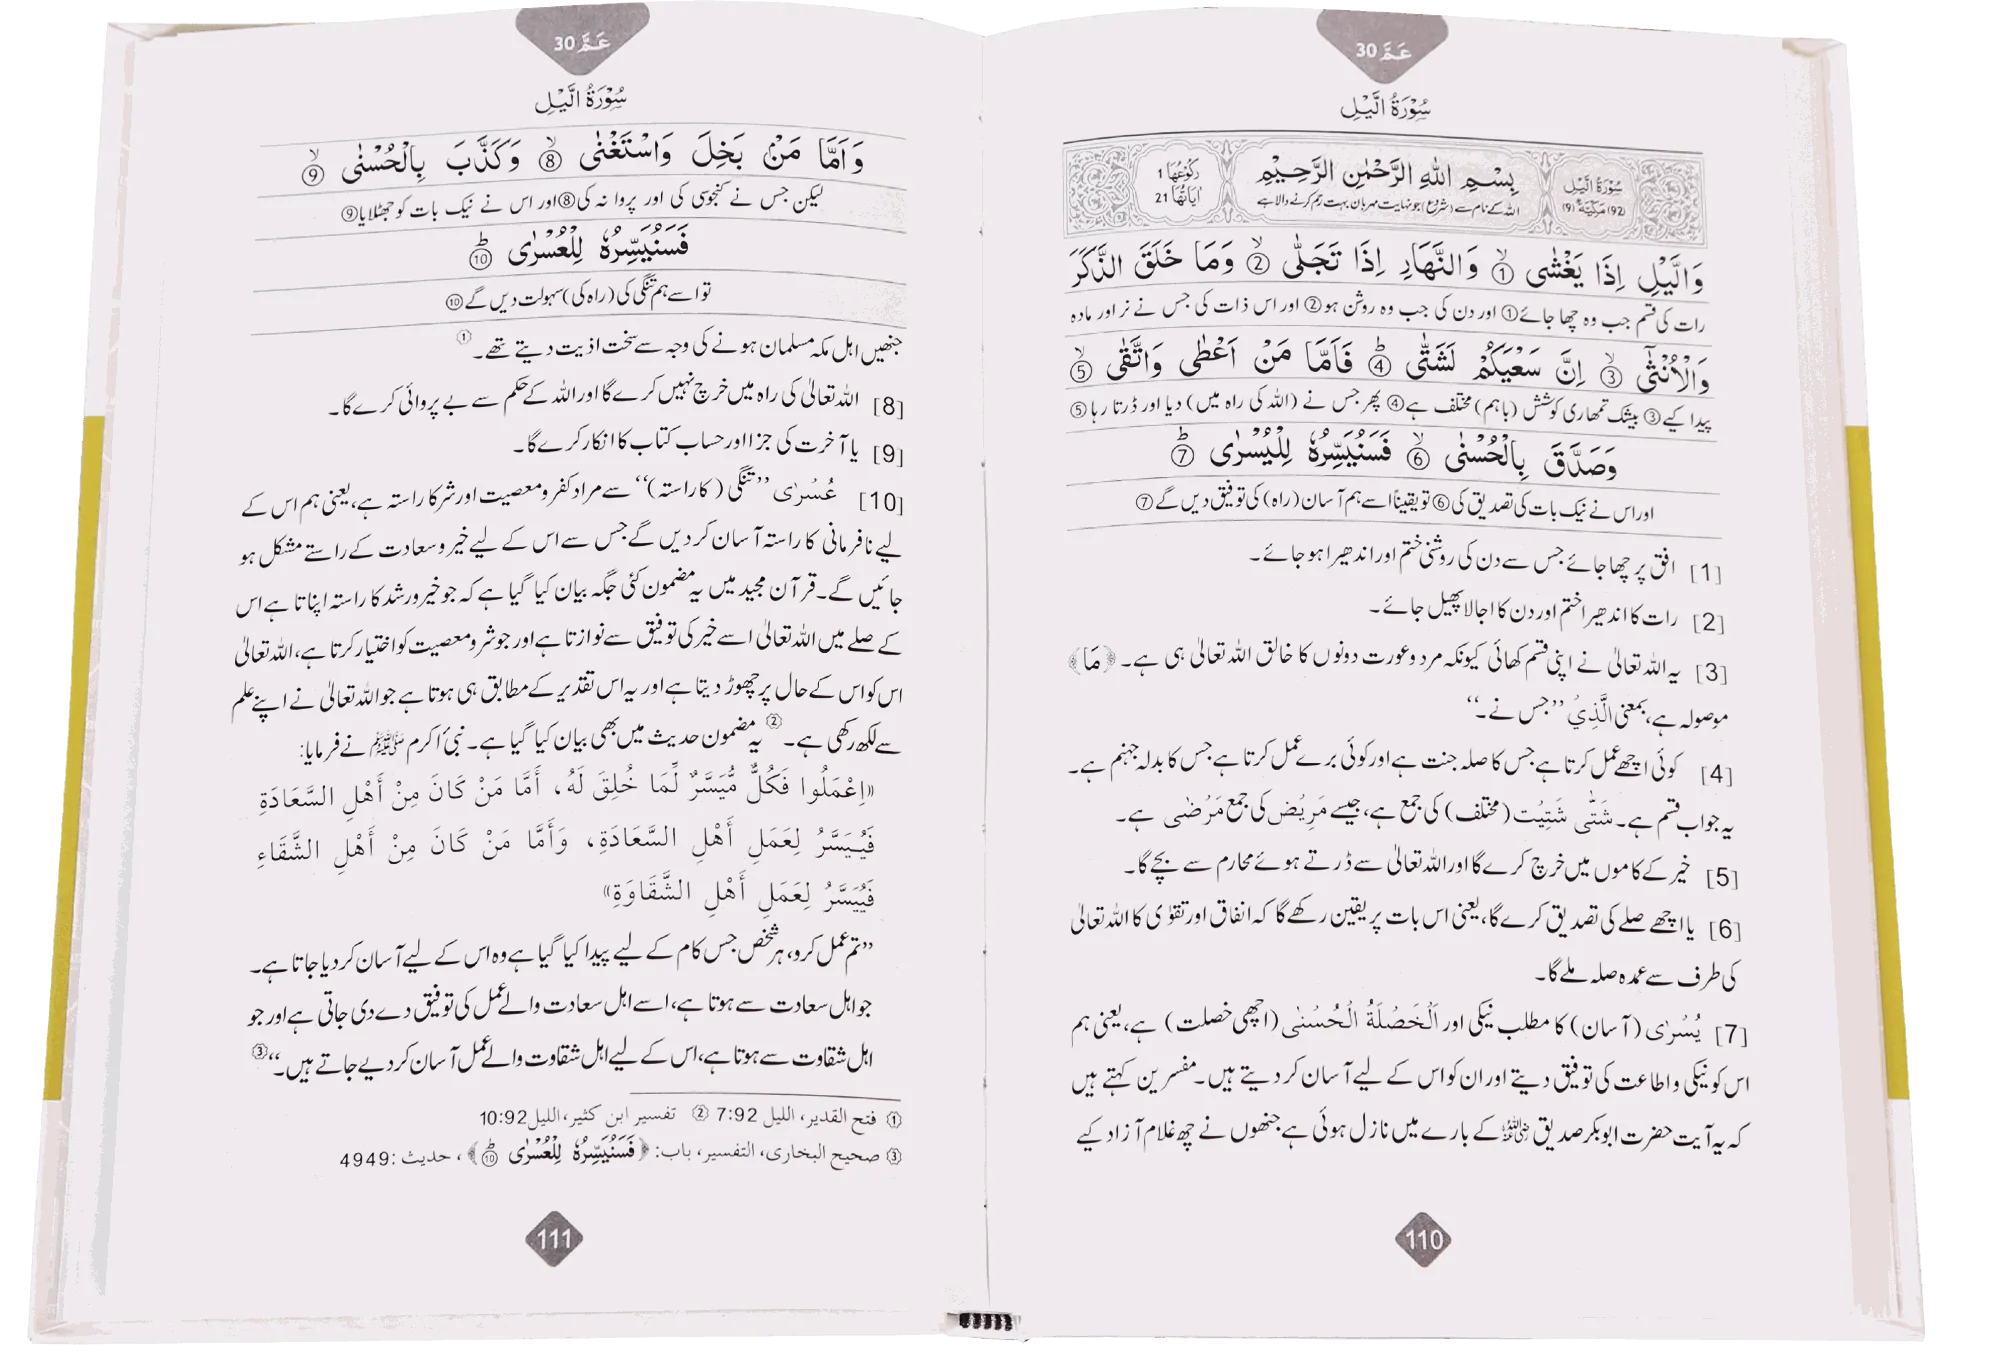 عَمَّ 30
سُوْرَةُ الَّيْلِ
سُوْرَةُ الَّيْلِ
(92) مَكِّيَّةٌ (9)
بِسْمِ اللّٰهِ الرَّحْمٰنِ الرَّحِيْمِ
اللہ کے نام سے (شروع) جو نہایت مہربان بہت رحم کرنے والا ہے
رُكُوْعُهَا 1
اٰيَاتُهَا 21
وَالَّيْلِ اِذَا يَغْشٰى ① وَالنَّهَارِ اِذَا تَجَلّٰى ② وَمَا خَلَقَ الذَّكَرَ
رات کی قسم جب وہ چھا جائے① اور دن کی جب وہ روشن ہو② اور اس ذات کی جس نے نر اور مادہ
وَالْاُنْثٰٓى ③ اِنَّ سَعْيَكُمْ لَشَتّٰى ④ فَاَمَّا مَنْ اَعْطٰى وَاتَّقٰى ⑤
پیدا کیے③ بیشک تمھاری کوشش (باہم) مختلف ہے④ پھر جس نے (اللہ کی راہ میں) دیا اور ڈرتا رہا⑤
وَصَدَّقَ بِالْحُسْنٰى ⑥ فَسَنُيَسِّرُهٗ لِلْيُسْرٰى ⑦
اور اس نے نیک بات کی تصدیق کی⑥ تو یقیناً اسے ہم آسان (راہ) کی توفیق دیں گے⑦
[1] افق پر چھا جائے جس سے دن کی روشنی ختم اور اندھیرا ہو جائے۔
[2] رات کا اندھیرا ختم اور دن کا اجالا پھیل جائے۔
[3] یہ اللہ تعالیٰ نے اپنی قسم کھائی کیونکہ مرد و عورت دونوں کا خالق اللہ تعالیٰ ہی ہے۔ ﴿مَا﴾
موصولہ ہے، بمعنی الَّذِيْ ’’جس نے۔‘‘
[4] کوئی اچھے عمل کرتا ہے جس کا صلہ جنت ہے اور کوئی برے عمل کرتا ہے جس کا بدلہ جہنم ہے۔
یہ جواب قسم ہے۔ شَتّٰى شَتِيْت (مختلف) کی جمع ہے، جیسے مَرِيْض کی جمع مَرْضٰى ہے۔
[5] خیر کے کاموں میں خرچ کرے گا اور اللہ تعالیٰ سے ڈرتے ہوئے محارم سے بچے گا۔
[6] یا اچھے صلے کی تصدیق کرے گا، یعنی اس بات پر یقین رکھے گا کہ انفاق اور تقوٰی کا اللہ تعالیٰ
کی طرف سے عمدہ صلہ ملے گا۔
[7] يُسْرٰى (آسان) کا مطلب نیکی اور اَلْخَصْلَةُ الْحُسْنٰى (اچھی خصلت) ہے، یعنی ہم
اس کو نیکی و اطاعت کی توفیق دیتے اور ان کو اس کے لیے آسان کر دیتے ہیں۔ مفسرین کہتے ہیں
کہ یہ آیت حضرت ابوبکر صدیق رضی اللہ عنہ کے بارے میں نازل ہوئی ہے جنھوں نے چھ غلام آزاد کیے
110
عَمَّ 30
سُوْرَةُ الَّيْلِ
وَاَمَّا مَنْۢ بَخِلَ وَاسْتَغْنٰى ⑧ وَكَذَّبَ بِالْحُسْنٰى ⑨
لیکن جس نے کنجوسی کی اور پروا نہ کی⑧ اور اس نے نیک بات کو جھٹلایا⑨
فَسَنُيَسِّرُهٗ لِلْعُسْرٰى ⑩
تو اسے ہم تنگی کی (راہ کی) سہولت دیں گے⑩
جنھیں اہل مکہ مسلمان ہونے کی وجہ سے سخت اذیت دیتے تھے۔①
[8] اللہ تعالیٰ کی راہ میں خرچ نہیں کرے گا اور اللہ کے حکم سے بے پروائی کرے گا۔
[9] یا آخرت کی جزا اور حساب کتاب کا انکار کرے گا۔
[10] عُسْرٰى ’’تنگی (کا راستہ)‘‘ سے مراد کفر و معصیت اور شر کا راستہ ہے، یعنی ہم اس کے
لیے نافرمانی کا راستہ آسان کر دیں گے جس سے اس کے لیے خیر و سعادت کے راستے مشکل ہو
جائیں گے۔ قرآن مجید میں یہ مضمون کئی جگہ بیان کیا گیا ہے کہ جو خیر و رشد کا راستہ اپناتا ہے اس
کے صلے میں اللہ تعالیٰ اسے خیر کی توفیق سے نوازتا ہے اور جو شر و معصیت کو اختیار کرتا ہے، اللہ تعالیٰ
اس کو اس کے حال پر چھوڑ دیتا ہے اور یہ اس تقدیر کے مطابق ہی ہوتا ہے جو اللہ تعالیٰ نے اپنے علم
سے لکھ رکھی ہے۔② یہ مضمون حدیث میں بھی بیان کیا گیا ہے۔ نبیٔ اکرم ﷺ نے فرمایا:
«اِعْمَلُوا فَكُلٌّ مُّيَسَّرٌ لِّمَا خُلِقَ لَهُ، أَمَّا مَنْ كَانَ مِنْ أَهْلِ السَّعَادَةِ
فَيُيَسَّرُ لِعَمَلِ أَهْلِ السَّعَادَةِ، وَأَمَّا مَنْ كَانَ مِنْ أَهْلِ الشَّقَاءِ
فَيُيَسَّرُ لِعَمَلِ أَهْلِ الشَّقَاوَةِ»
’’تم عمل کرو، ہر شخص جس کام کے لیے پیدا کیا گیا ہے وہ اس کے لیے آسان کر دیا جاتا ہے۔
جو اہل سعادت سے ہوتا ہے، اسے اہل سعادت والے عمل کی توفیق دے دی جاتی ہے اور جو
اہل شقاوت سے ہوتا ہے، اس کے لیے اہل شقاوت والے عمل آسان کر دیے جاتے ہیں۔‘‘③
① فتح القدير، الليل 7:92 ② تفسير ابن كثير، الليل 10:92
③ صحيح البخاري، التفسير، باب: ﴿فَسَنُيَسِّرُهٗ لِلْعُسْرٰى ⑩﴾، حديث: 4949
111